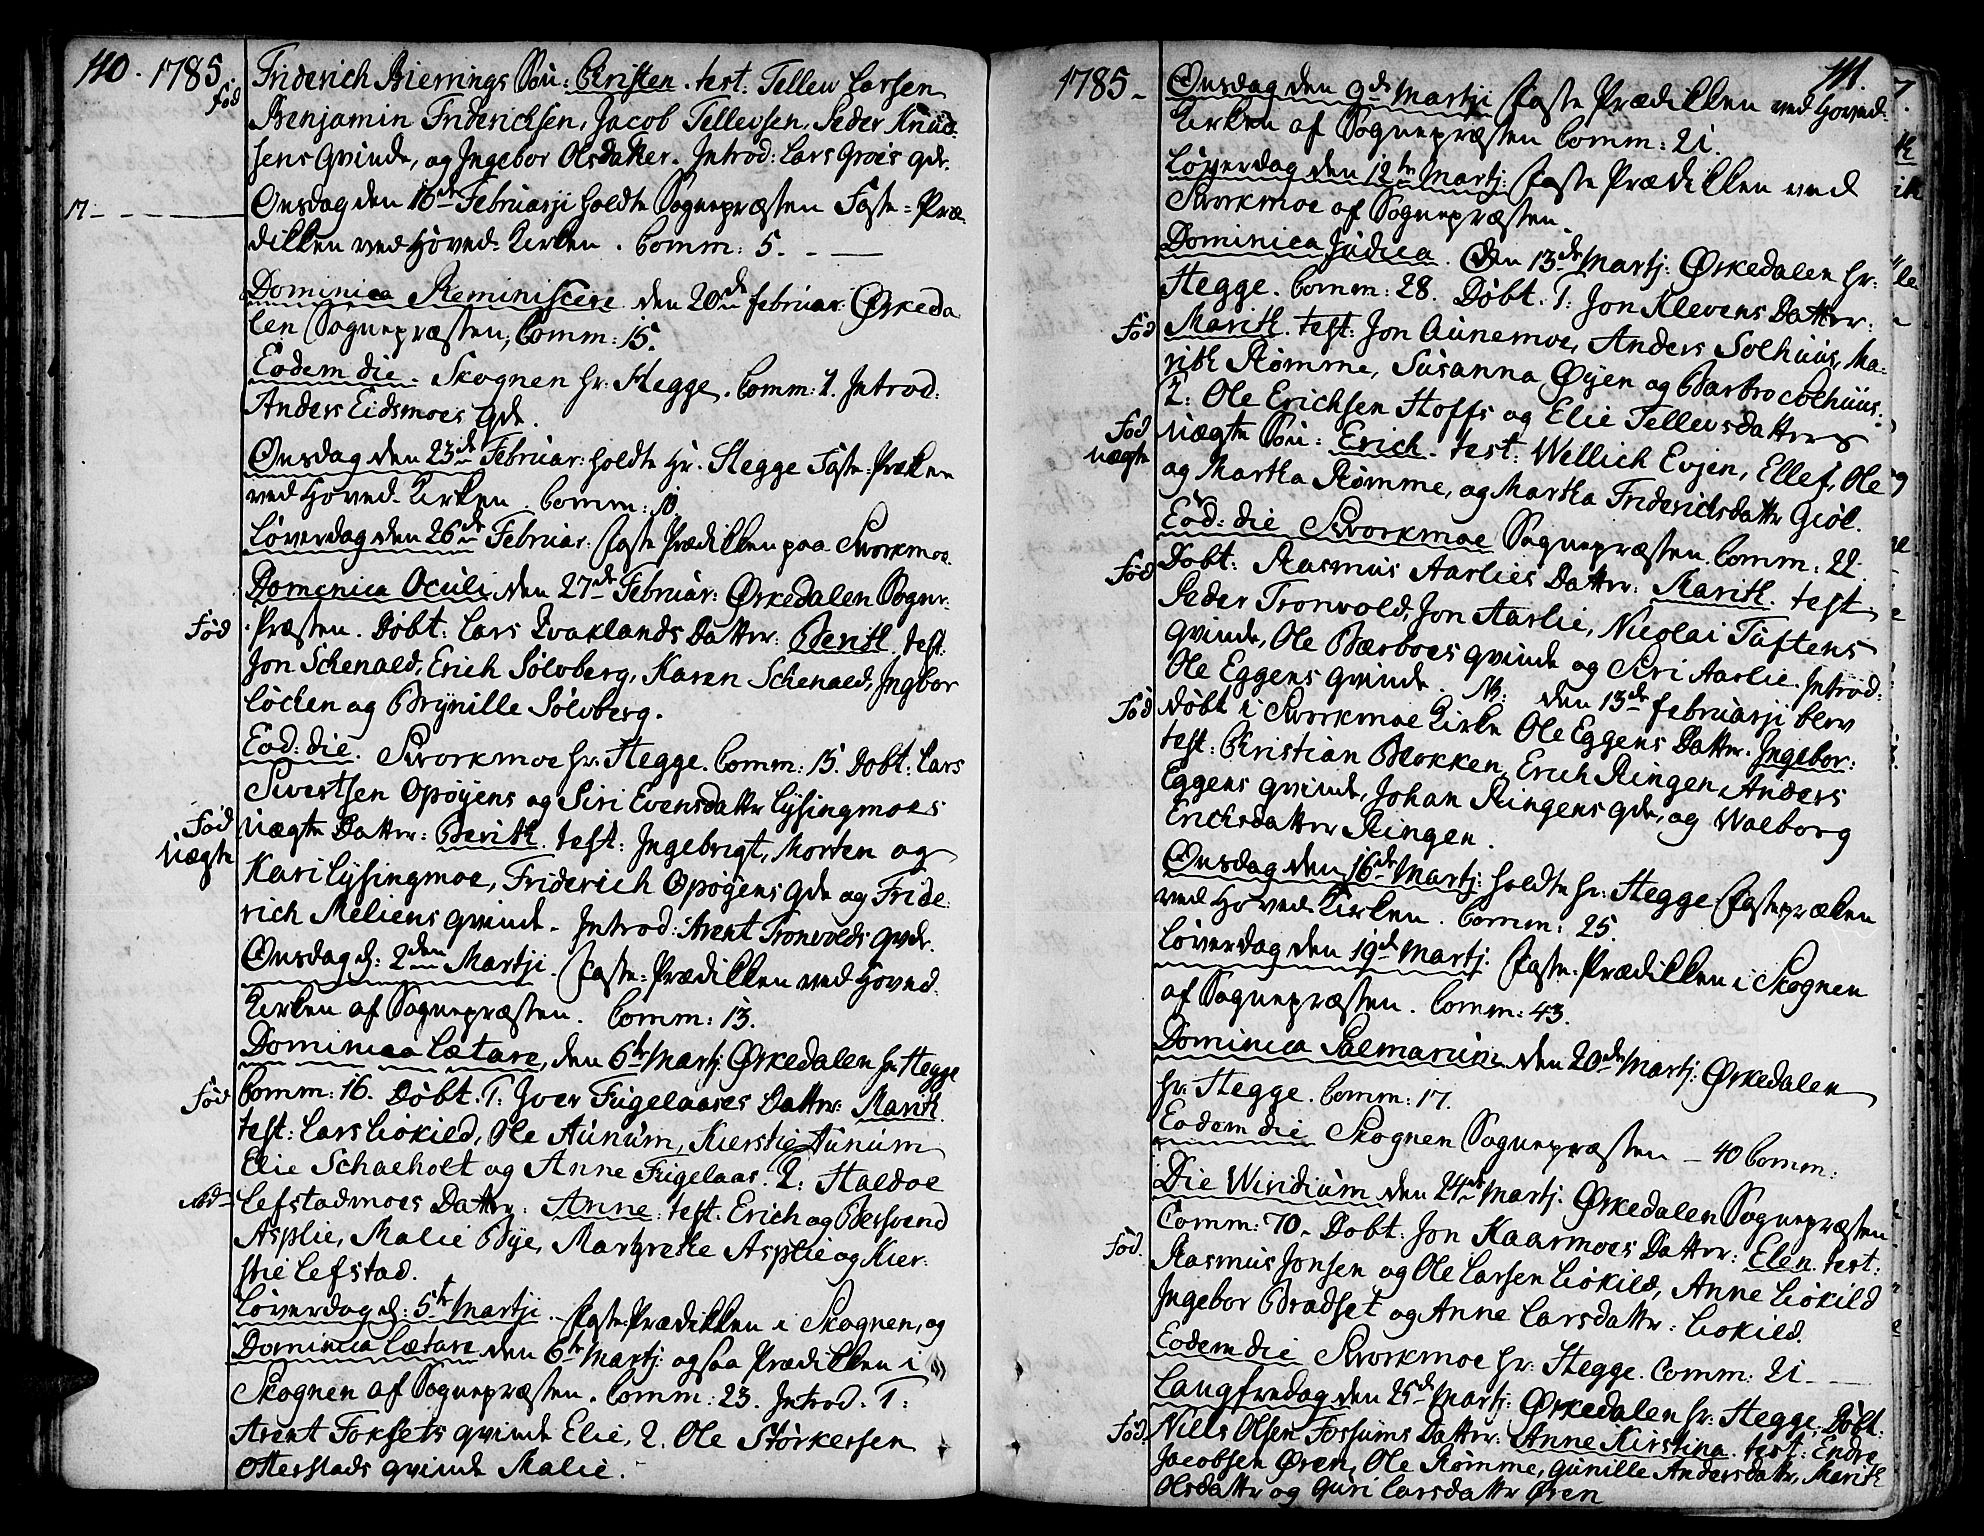 110. 1785.
Friderich Bierrings Søn: Christen. test: Tellev Larsen
Fød
Benjamin Friderichsen, Jacob Tellevsen, Peder Knud-
sens Qvinde, og Ingebor Olsdatter. Introd: Lars Grois qde.
Onsdag den 16de Februarji holdte Sognepræsten Faste-Præ-
17.
dikken ved Hoved-Kirken. Comm: 5.
Dominica Reminiscere den 20de Februar: Ørkeda-
len Sognepræsten, Comm: 15.
Eodem die. Skognen hr: Hegge. Comm: 1. Introd:
Anders Eidsmoes qde.
Onsdag den 23de Februar: holdte Hr. Hegge Faste-Præken
ved Hoved-Kirken. Comm: 10.
Løverdag den 26de Februar: Faste Prædikken paa Svorkmoe.
Domenica Oculi den 27de Februar: Ørkedalen Sogne-
Fød
Præsten. Døbt: Lars Qvaklands Datter: Berith. test.
Jon Schenald, Erich Sølvberg, Karen Schenald, Ingbor
Løcken og Brynille Sølvberg.
Eod: die. Svorkmoe hr: Hegge. Comm: 15. Døbt: Lars
Sivertsen Opøyens og Siri Evensdattr Lysingmoes
Fød
Uægte
Uægte Datter: Berith. test: Ingebrigt, Morten og
Kari Lysingmoe, Friderich Opøyens qde og Fride-
rich Meliens qvinde. Introd: Arent Tronvolds qvde.
Onsdag d: 2den Martji. Faste-Prædikken ved Hoved-
Kirken af Sognepræsten. Comm: 13.
Dominica Lætare, den 6te Martj: Ørkedalen hr. Hegge
Fød
Comm: 16. Døbt. 1: Iver Fugelaases Datter: Marith.
test: Lars Liøkild, Ole Aunum, Kierstie Aunum
Elie Schaeholt og Anne Fugelaas. 2: Haldoe
Fød
Lefstadmoes Datter: Anne: test. Erich og Bersvend
Asplie, Malie Bye, Margrethe Asplie og Kier-
stie Lefstad.
Løverdag d: 5te Martji. Faste-Prædikken i Skognen, og
Dominica Lætare den 6te Martj: ogsaa Prædikken i
Skognen af Sognepræsten. Comm: 23. Introd. 1:
Arent Foksets qvinde Elie, 2. Ole Størkersen
Otterstads qvinde Malie.
1785. 111.
Onsdag den 9de Martji Faste Prædikken ved Hoved-
Kirken af Sognepræsten Comm: 21.
Løverdag den 12te Martj: Faste Prædikken ved
Svorkmoe af Sognepræsten.
Dominica Judica. Den 13de Martj: Ørkedalen hr:
Hegge. Comm: 28. Døbt. 1: Jon Klevens Datter:
Fød
Marith. test: Jon Aunemoe, Anders Solhuus, Ma-
rith Rømme, Susanna Øyen og Barbro Solhuus.
2: Ole Erichsen Hoffs og Elie Tellevsdatters
Fød
Uægte
Uægte Søn: Erich. test: Wellich Evjen, Ellef, Ole
og Martha Rømme, og Martha Friderichsdattr Giøl.
Eod: die Svorkmoe Sognepræsten. Comm: 22.
Fød
Døbt: Rasmus Aarlies Datter: Marith. test
Peder Tronvold, Jon Aarlie, Nicolai Tuftens
qvinde, Ole Bærboes qvinde og Siri Aarlie. Introd:
Ole Eggens qvinde. NB: den 13de Februarji blev
Fød
døbt i Svorkmoe Kirke Ole Eggens Datter. Ingebor:
test: Christian Blokken, Erich Ringen, Anders
Eggens qvinde, Johan Ringens qde, og Walborg
Erichsdatter Ringen.
Onsdag den 16de Martj: holdte hr: Hegge Fastepræken
ved Hoved-Kirken. Comm: 25.
Løverdag den 19de Martj: Faste-Prædikken i Skognen
af Sognepræsten. Comm: 43.
Dominica Palmarum den 20de Martj: Ørkedalen
hr: Hegge. Comm: 17.
Eodem die Skognen Sognepræsten – 40 Comm:
Die Viridium den 24de Martj. Ørkedalen Sognepræsten.
Comm: 70. Døbt: Jon Kaarmoes Datter: Elen. test:
Fød.
Rasmus Jonsen og Ole Larsen Liøkild, Anne Liøkild
Ingebor Bradset og Anne Larsdattr: Liøkild.
Eodem die Svorkmoe hr: Hegge. Comm: 21.
Langfredag den 25de Martj: Ørkedalen hr: Hegge. Døbt:
Fød.
Niels Olsen Fossums Datter: Anne Kirstina. test: Endre
Jacobsen Øren, Ole Rømme, Gunille Andersdattr, Marith
Olsdattr og Guri Larsdattr Øren